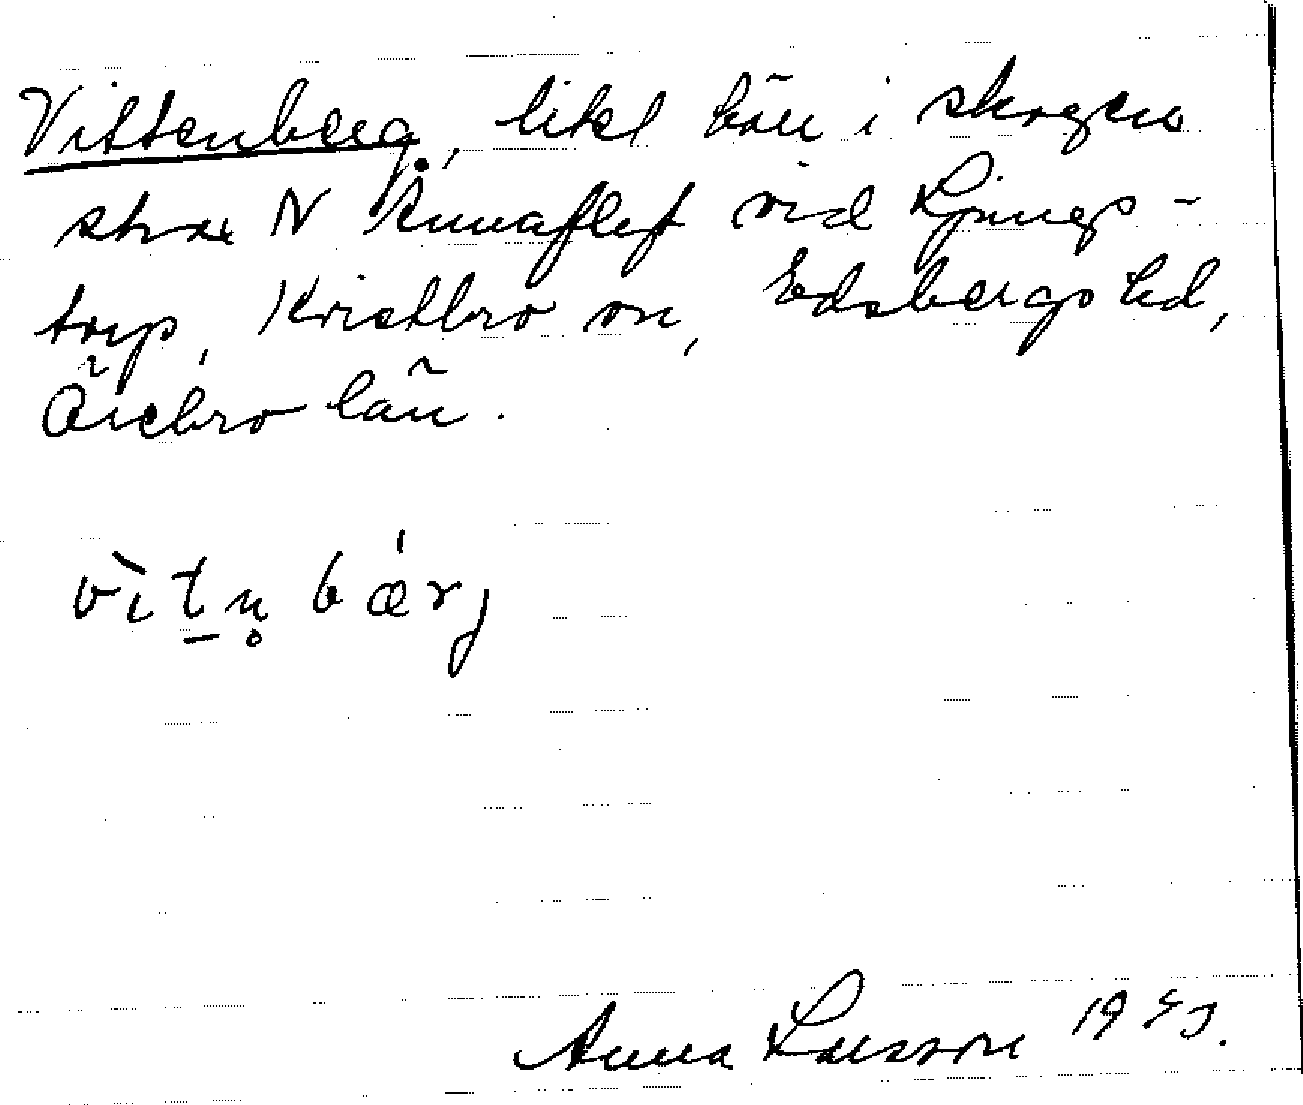 Vittenberg, likt bön i skogen
strax N Annaflef vid Ljungs-
torp, Kristbro sn, Edsbergs hd,
Örebro län.
vìtn̥bǽrj
Anna Larsson 19